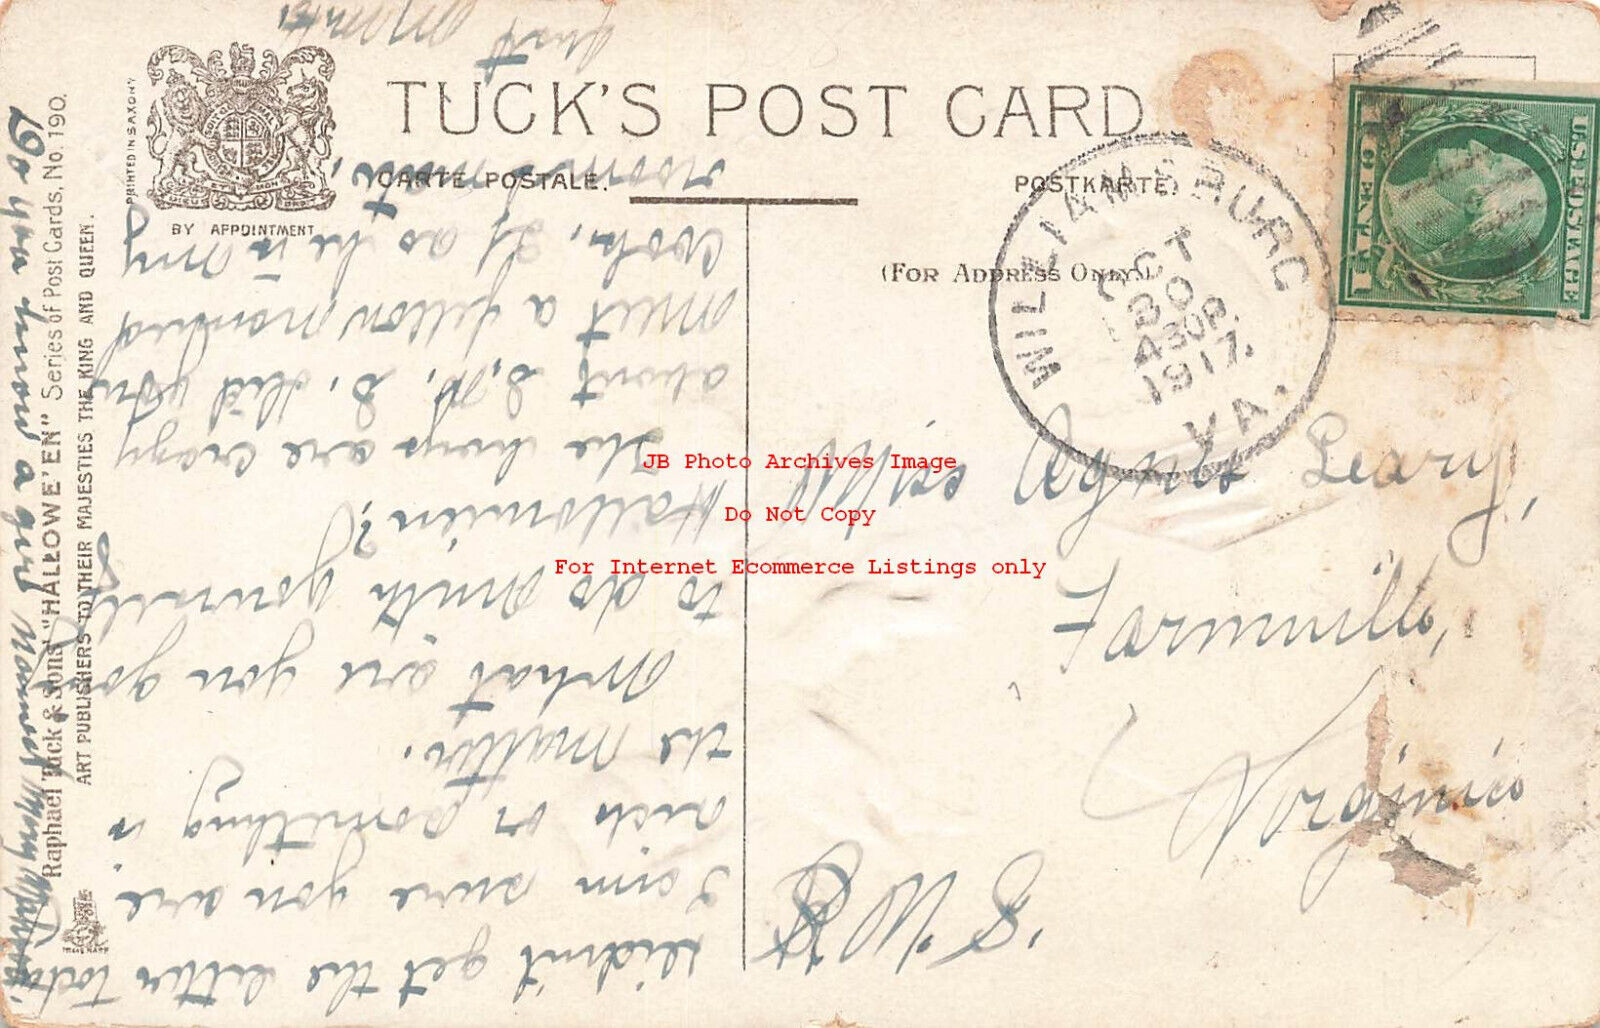 TUCK'S POST CARD
CARTE POSTALE.
POSTKARTE.
(FOR ADDRESS ONLY.)
PRINTED IN SAXONY
BY APPOINTMENT
Raphael Tuck & Sons' "HALLOWE'EN" Series of Post Cards, No. 190.
ART PUBLISHERS TO THEIR MAJESTIES THE KING AND QUEEN.
TRADE MARK
WILLIAMSBURG
OCT
30
430P.
1917.
VA.
U.S. POSTAGE
1 CENT 1
Miss Agnes Leary
Farmville
Virginia
S.W.S
Didn't get the letter today
I am sure you are
sick or something is
the matter.
What are you going
to do with yourself
Halloween?
The boys are crazy
about S.N.S. Did you
meet a fellow named
Cook, Jr as he is my
roommate,
just
Do you know a girl named
JB Photo Archives Image
Do Not Copy
For Internet Ecommerce Listings only